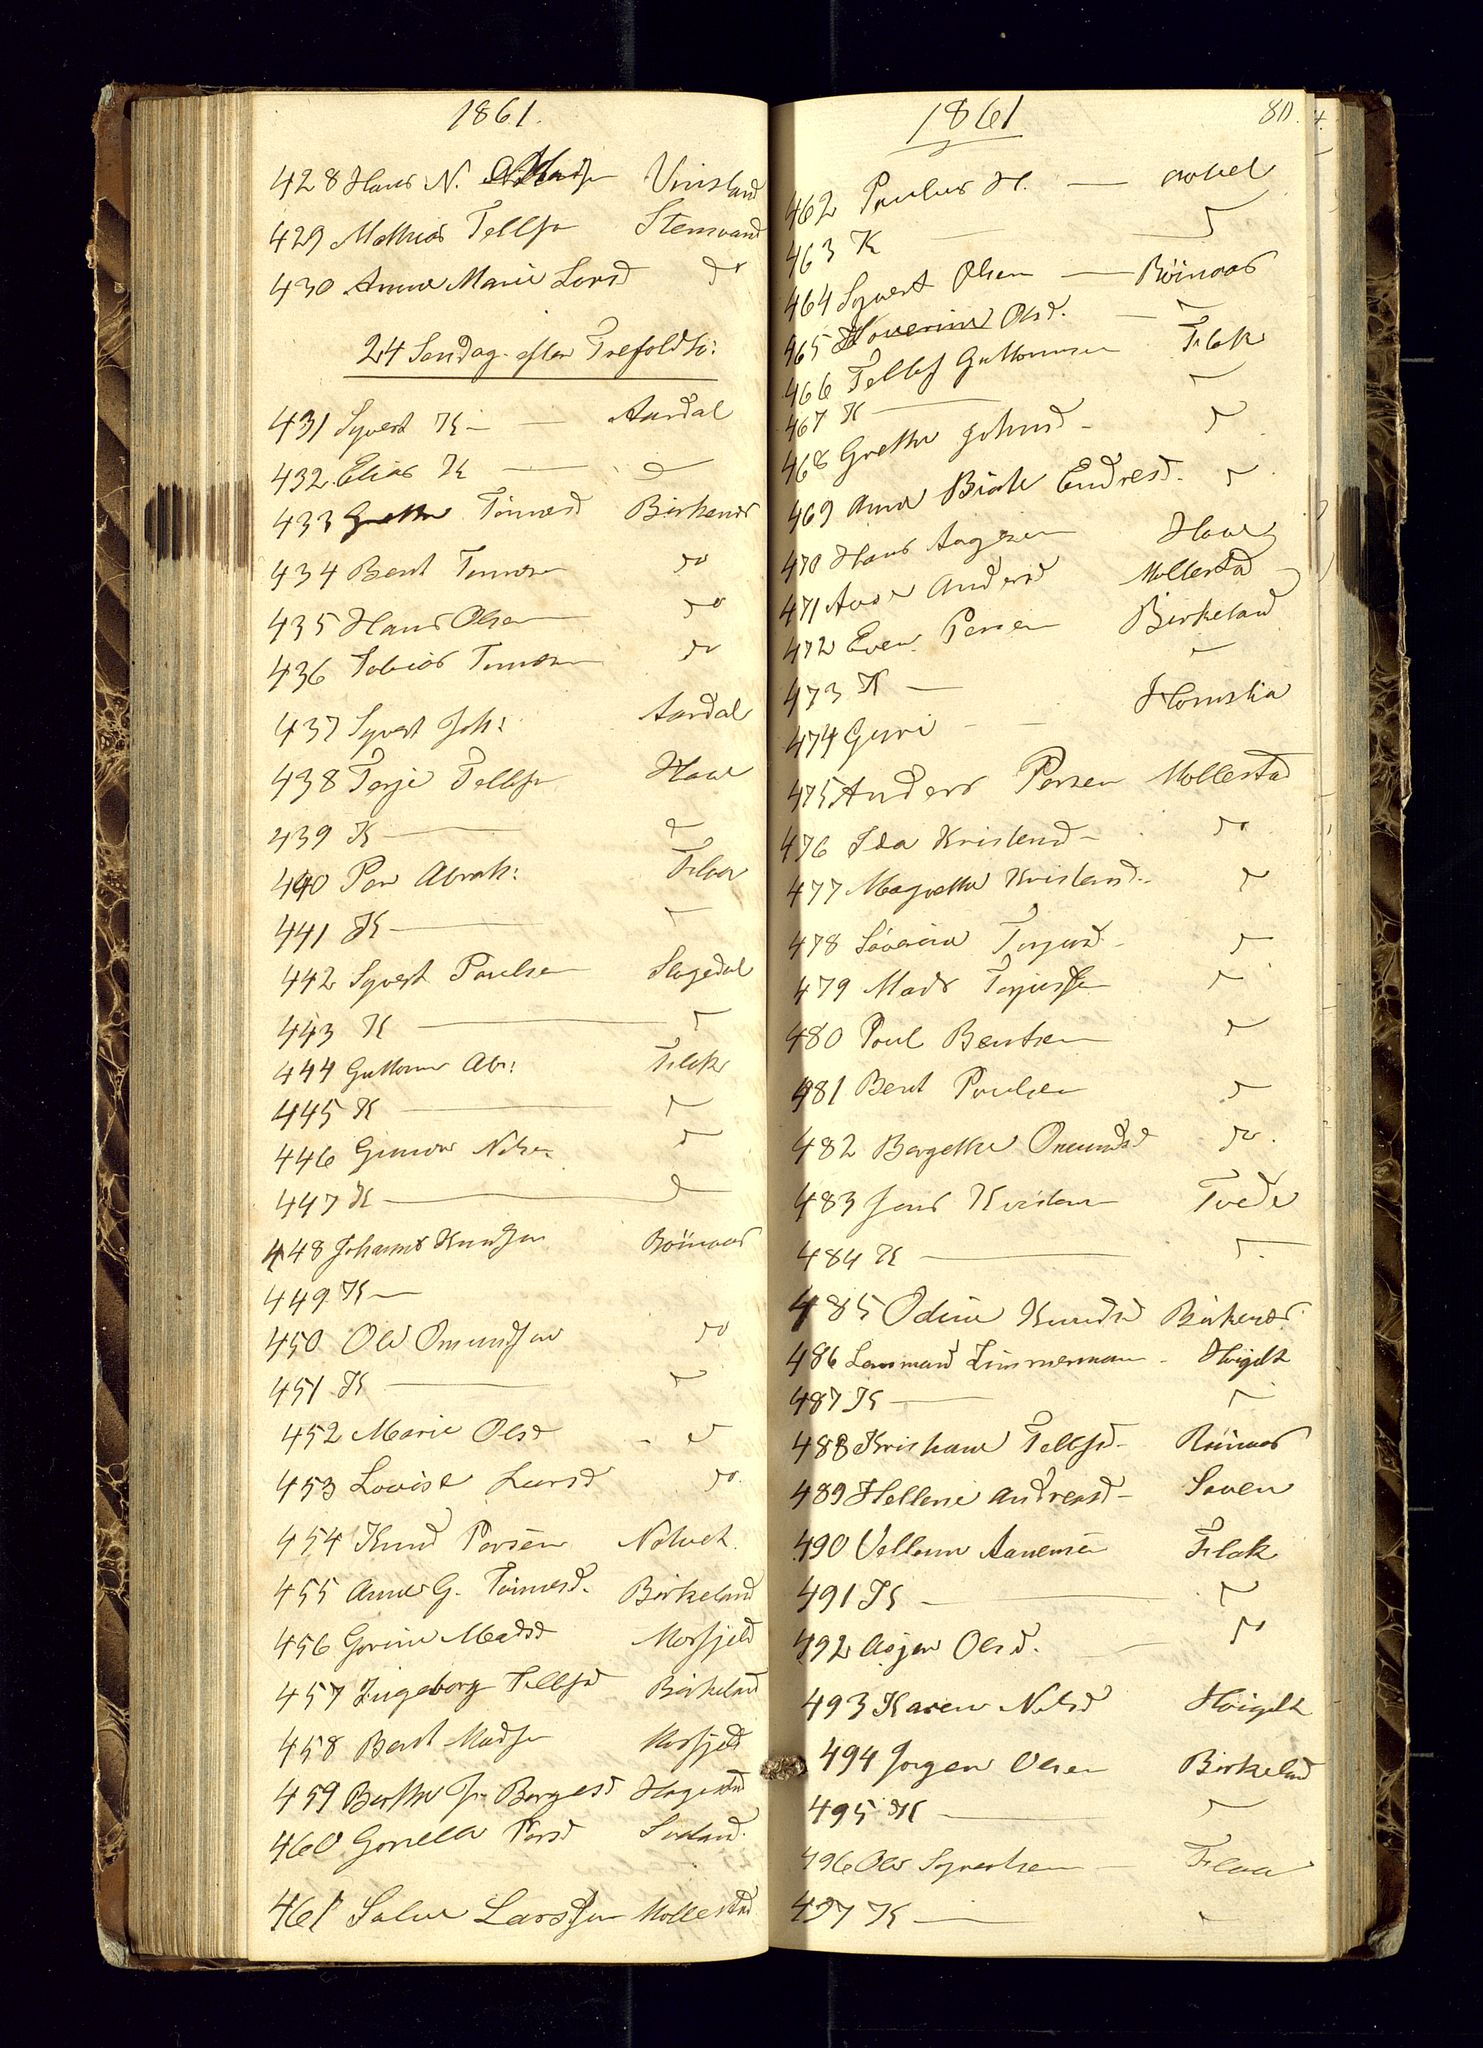 1861.
428 Hans N. Vinsland
429 Mathias Tellfsn Stensvand
430 Anne Marie Larsd do
24 Søndag efter Trefoldh:
431 Syvert K — Aardal
432 Elias K — d
433 Grethe Tønnesd Birkenes
434 Bent Tønnesn do
435 Hans Olsen do
436 Tobias Tønnesn do
437 Syvert Joh: Aardal
438 Terje Tellfsn Haae
439 K — d
440 Per Abrah: Flaa
441 K —
442 Syvert Poulsen Slogedal
443 K —
444 Guttorm Abr: Flak
445 K —
446 Gunvor Nelsen
447 K — d
448 Johannes Knudsen Røinaas
449 K —
450 Ole Omundsen do
451 K —
452 Marie Olsd - d
453 Lovise Larsd do.
454 Knud Persen Natvet.
455 Anne G. Tønnesd. Birkeland
456 Gorine Madsd Mosfjeld
457 Ingeborg Tellfsd Birkeland
458 Bent Madsn Mosfjeld
459 Berthe Jr. Børgesd Hagestad
460 Gonella Persd
461 Salve Larssen Mollestad
1861 80.
462 Paulus H. —
463 K —
464 Syvert Olsen — Røinaas
465 Olsd. —
466 Tellef Guttormsen Flak
467 K —
468 Grethe Johnsd -
469 Anne Birte Endresd.
470 Hans Aagesen Haae
471 Aase Andersd Mollestad
472 Even Persen Birkeland
473 K —
474 Guri — —
475 Anders Persen Mollestad
476 Ida Kristensd - do
477 Magrethe Kristensd.
478 Søverine Terjesd -
479 Mads Terjessen
480 Poul Bentsen
481 Bent Poulsen
482 Bergethe Omundsd do.
483 Jens Kristensen Tvede
484 K —
485 Odine Knudsd Birkenes.
486 Lensmand Zimmermann - Høigilt
487 K —
488 Kristiane Tellfsd - Røinaas
489 Hellene Andreasd - Søven
490 Vellom Aanensen Flak
491 K —
492 Asjer Olsd. — do
493 Karen Nelsd Høigilt
494 Jørgen Olsen Birkeland
495 K —
496 Ole Syvertsen — Flaa
497 K —